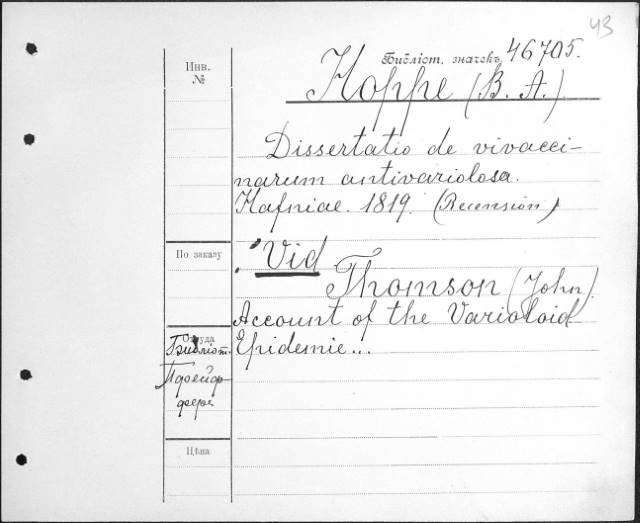 43
Библіот. значекъ 46705.
Hoppe (B. A.)
Инв.
№
Dissertatio de vivacci-
narum antivariolosa.
Hafniae. 1819. (Recension)
По заказу
Vid
Thomson (John)
Account of the Varioloid
Epidemie...
Откуда
Библіот.
Пфейф-
фера
Цѣна